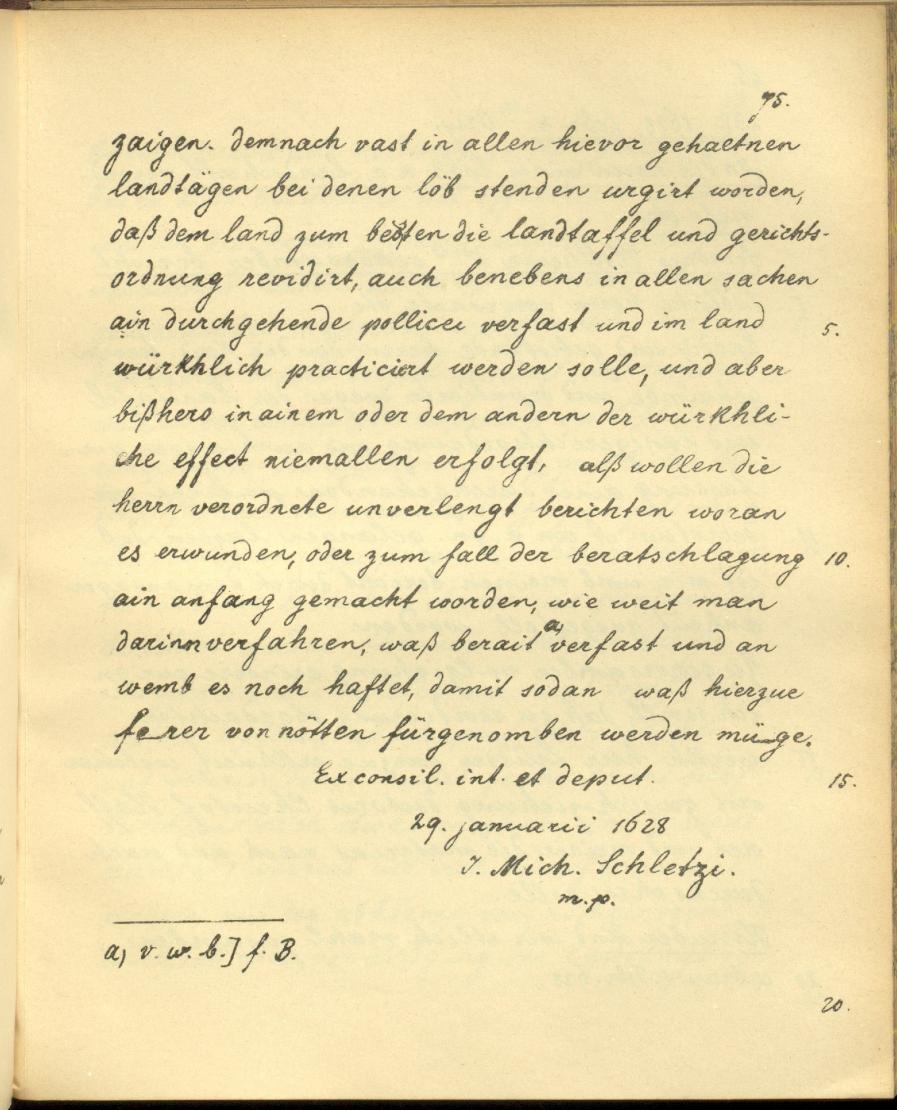 75.
zaigen. demnach vast in allen hievor gehaltnen
landtägen bei denen löb stenden urgirt worden,
daß dem land zum besten die landtaffel und gerichts-
ordnung revidirt, auch benebens in allen sachen
ain durchgehende pollicei verfast und im land 5.
würkhlich practiciert werden solle, und aber
bißhero in ainem oder dem andern der würkhli-
che effect niemallen erfolgt, alß wollen die
herrn verordnete unverlengt berichten woran
es erwunden, oder zum fall der beratschlagung 10.
ain anfang gemacht worden, wie weit man
darinn verfahren, waß berait a) verfast und an
wemb es noch haftet, damit sodan waß hierzue
ferer von nötten fürgenomben werden müge.
Ex consil. int. et deput. 15.
29. januarii 1628
J. Mich. Schletzi.
m. p.
a) v. w. b.] f. B.
20.